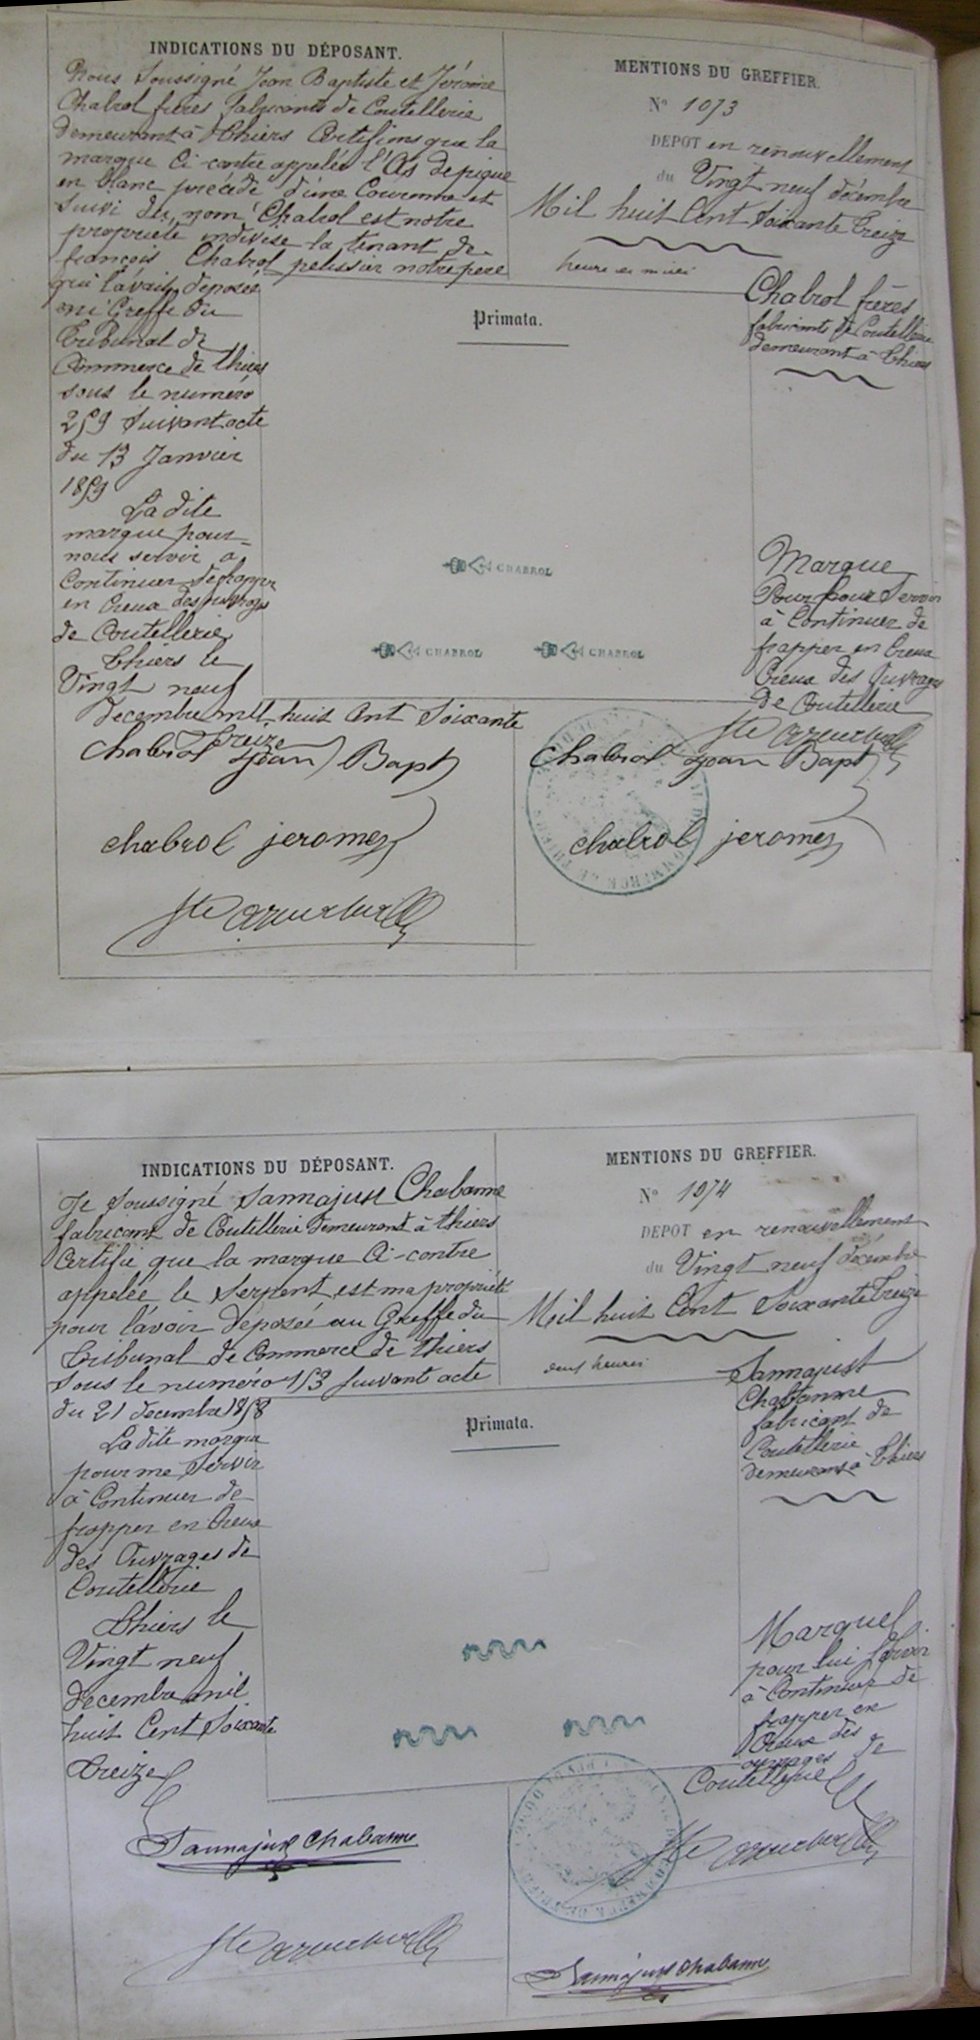 INDICATIONS DU DÉPOSANT.
Nous Soussigné Jean Baptiste et Jérôme
Chabrol frères fabricants de Coutellerie
demeurant à Thiers Certifions que la
marque Ci-contre appelée l'As de pique
en blanc précédé d'une Couronne et
Suivi du nom Chabrol est notre
propriété indivise la tenant de
françois Chabrol pelissier notre père
qui l'avait déposée
au Greffe du
Tribunal de
Commerce de thiers
sous le numéro
259 Suivant acte
du 13 Janvier
1859
La dite
marque pour
nous servir à
Continuer de frapper
en Creux des ouvrages
de Coutellerie
Thiers le
Vingt neuf
decembre mil huit Cent Soixante
Treize
Chabrol jean Bapt
chabrol jerome
MENTIONS DU GREFFIER.
N° 1073
DEPOT en renouvellement
du Vingt neuf décembre
Mil huit Cent Soixante Treize
Chabrol frères
fabricants de Coutellerie
demeurant à Thiers
Primata.
CHABROL
CHABROL CHABROL
Marque
Pour leur Servir
à Continuer de
frapper en Creux
Creux des Ouvrages
de Coutellerie
Chabrol jean Bapt
chabrol jerome
INDICATIONS DU DÉPOSANT.
Je Soussigné Sannajust Chabanne
fabricant de Coutellerie demeurant à thiers
Certifie que la marque Ci-contre
appelée le Serpent est ma propriété
pour l'avoir déposée au Greffe du
Tribunal de Commerce de thiers
Sous le numéro 153 Suivant acte
du 21 decembre 1858
La dite marque
pour me Servir
à Continuer de
frapper en Creux
des Ouvrages de
Coutellerie
Thiers le
Vingt neuf
decembre mil
huit Cent Soixante
Treize
Sannajust Chabanne
MENTIONS DU GREFFIER.
N° 1074
DEPOT en renouvellement
du Vingt neuf décembre
Mil huit Cent Soixante Treize
heures
Sannajust
Chabanne
fabricant de
Coutellerie
demeurant à Thiers
Primata.
Marque
pour lui Servir
à Continuer de
frapper en
Creux des
ouvrages de
Coutellerie
Sannajust Chabanne